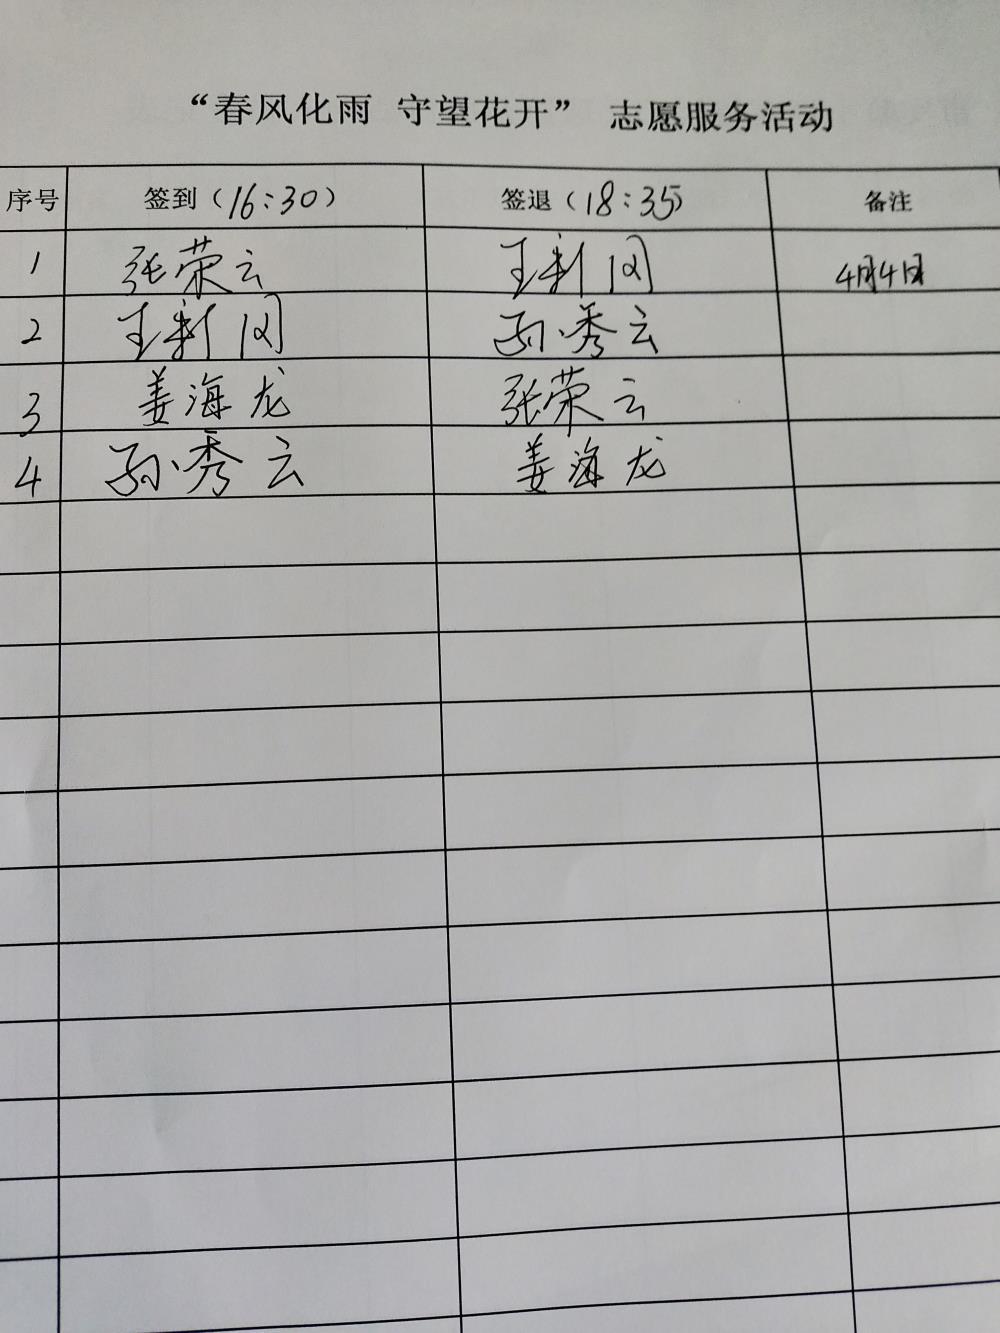 “春风化雨 守望花开” 志愿服务活动
序号 签到（16:30） 签退（18:35） 备注
1 张荣云 王新闵 4月4日
2 王新闵 孙秀云
3 姜海龙 张荣云
4 孙秀云 姜海龙